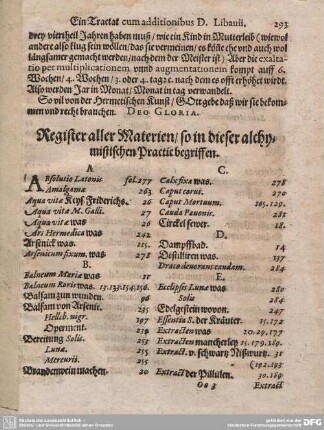 Ein Tractat cum additionibus D. Libauii. 293
drey viertheil Jahren haben muß/ wie ein Kind in Mutterleib (wiewol
andere also flug sein wöllen/ das sie vermeinen/ es köñe ehe vnd auch wol
längsamer gemacht werden/ nach dem der Meister ist) Aber die exalta-
tio per multiplicationem vnnd augmentationem kompt auff 6.
Wochen/ 4. Wochen/ 3. oder 4. tag 2c. nach dem es offt erhöhet wirdt.
Also werden Jar in Monat/ Monat in tag verwandelt.
So vil von der Hermetischen Kunst/ GOtt gebe daß wir sie bekom-
men vnd recht brauchen. DEO GLORIA.
Register aller Materien/ so in dieser alchy-
mistischen Practic begriffen.
A
ABsolutis Latonis fol. 277
Amalgama 263
Aqua vitæ Keys. Friderichs. 26
Aqua vitæ M. Galli. 27
Aqua vitæ was 26
Ars Hermedica was 242
Arsenick was. 115.
Arsenicum fixum, was 278
B.
Balneum Mariæ was 11
Balneum Roris was. 13.133.154.156.
Balsam zun wunden. 96
Balsam von Arsenic. 235
Helleb. nigr. 197
Operment. 235
Bereitung Solis. 233
Lunæ. 255
Mercurii. 255
Brandenwein machen. 20
C.
Calx fixa was. 278
Caput corvi. 270
Caput Mortuum. 105.129.
Cauda Pauonis. 281
Circkel sewer. 18.
D.
Dampffbad. 14
Destilliren was. 137
Draco deuorans caudam. 284
E.
Ecclipsis Lunæ was 280
Solis 284
Edelgestein wovon. 247
Essentia S. der Kräuter. 15.172
Extracten was 20.29.177
Extracten mancherley 15.179.189.
Extract. v. schwartz Nißwurtz. 31
(192.193
Extract der Pillulen. 30.189
Oo 3 Extract